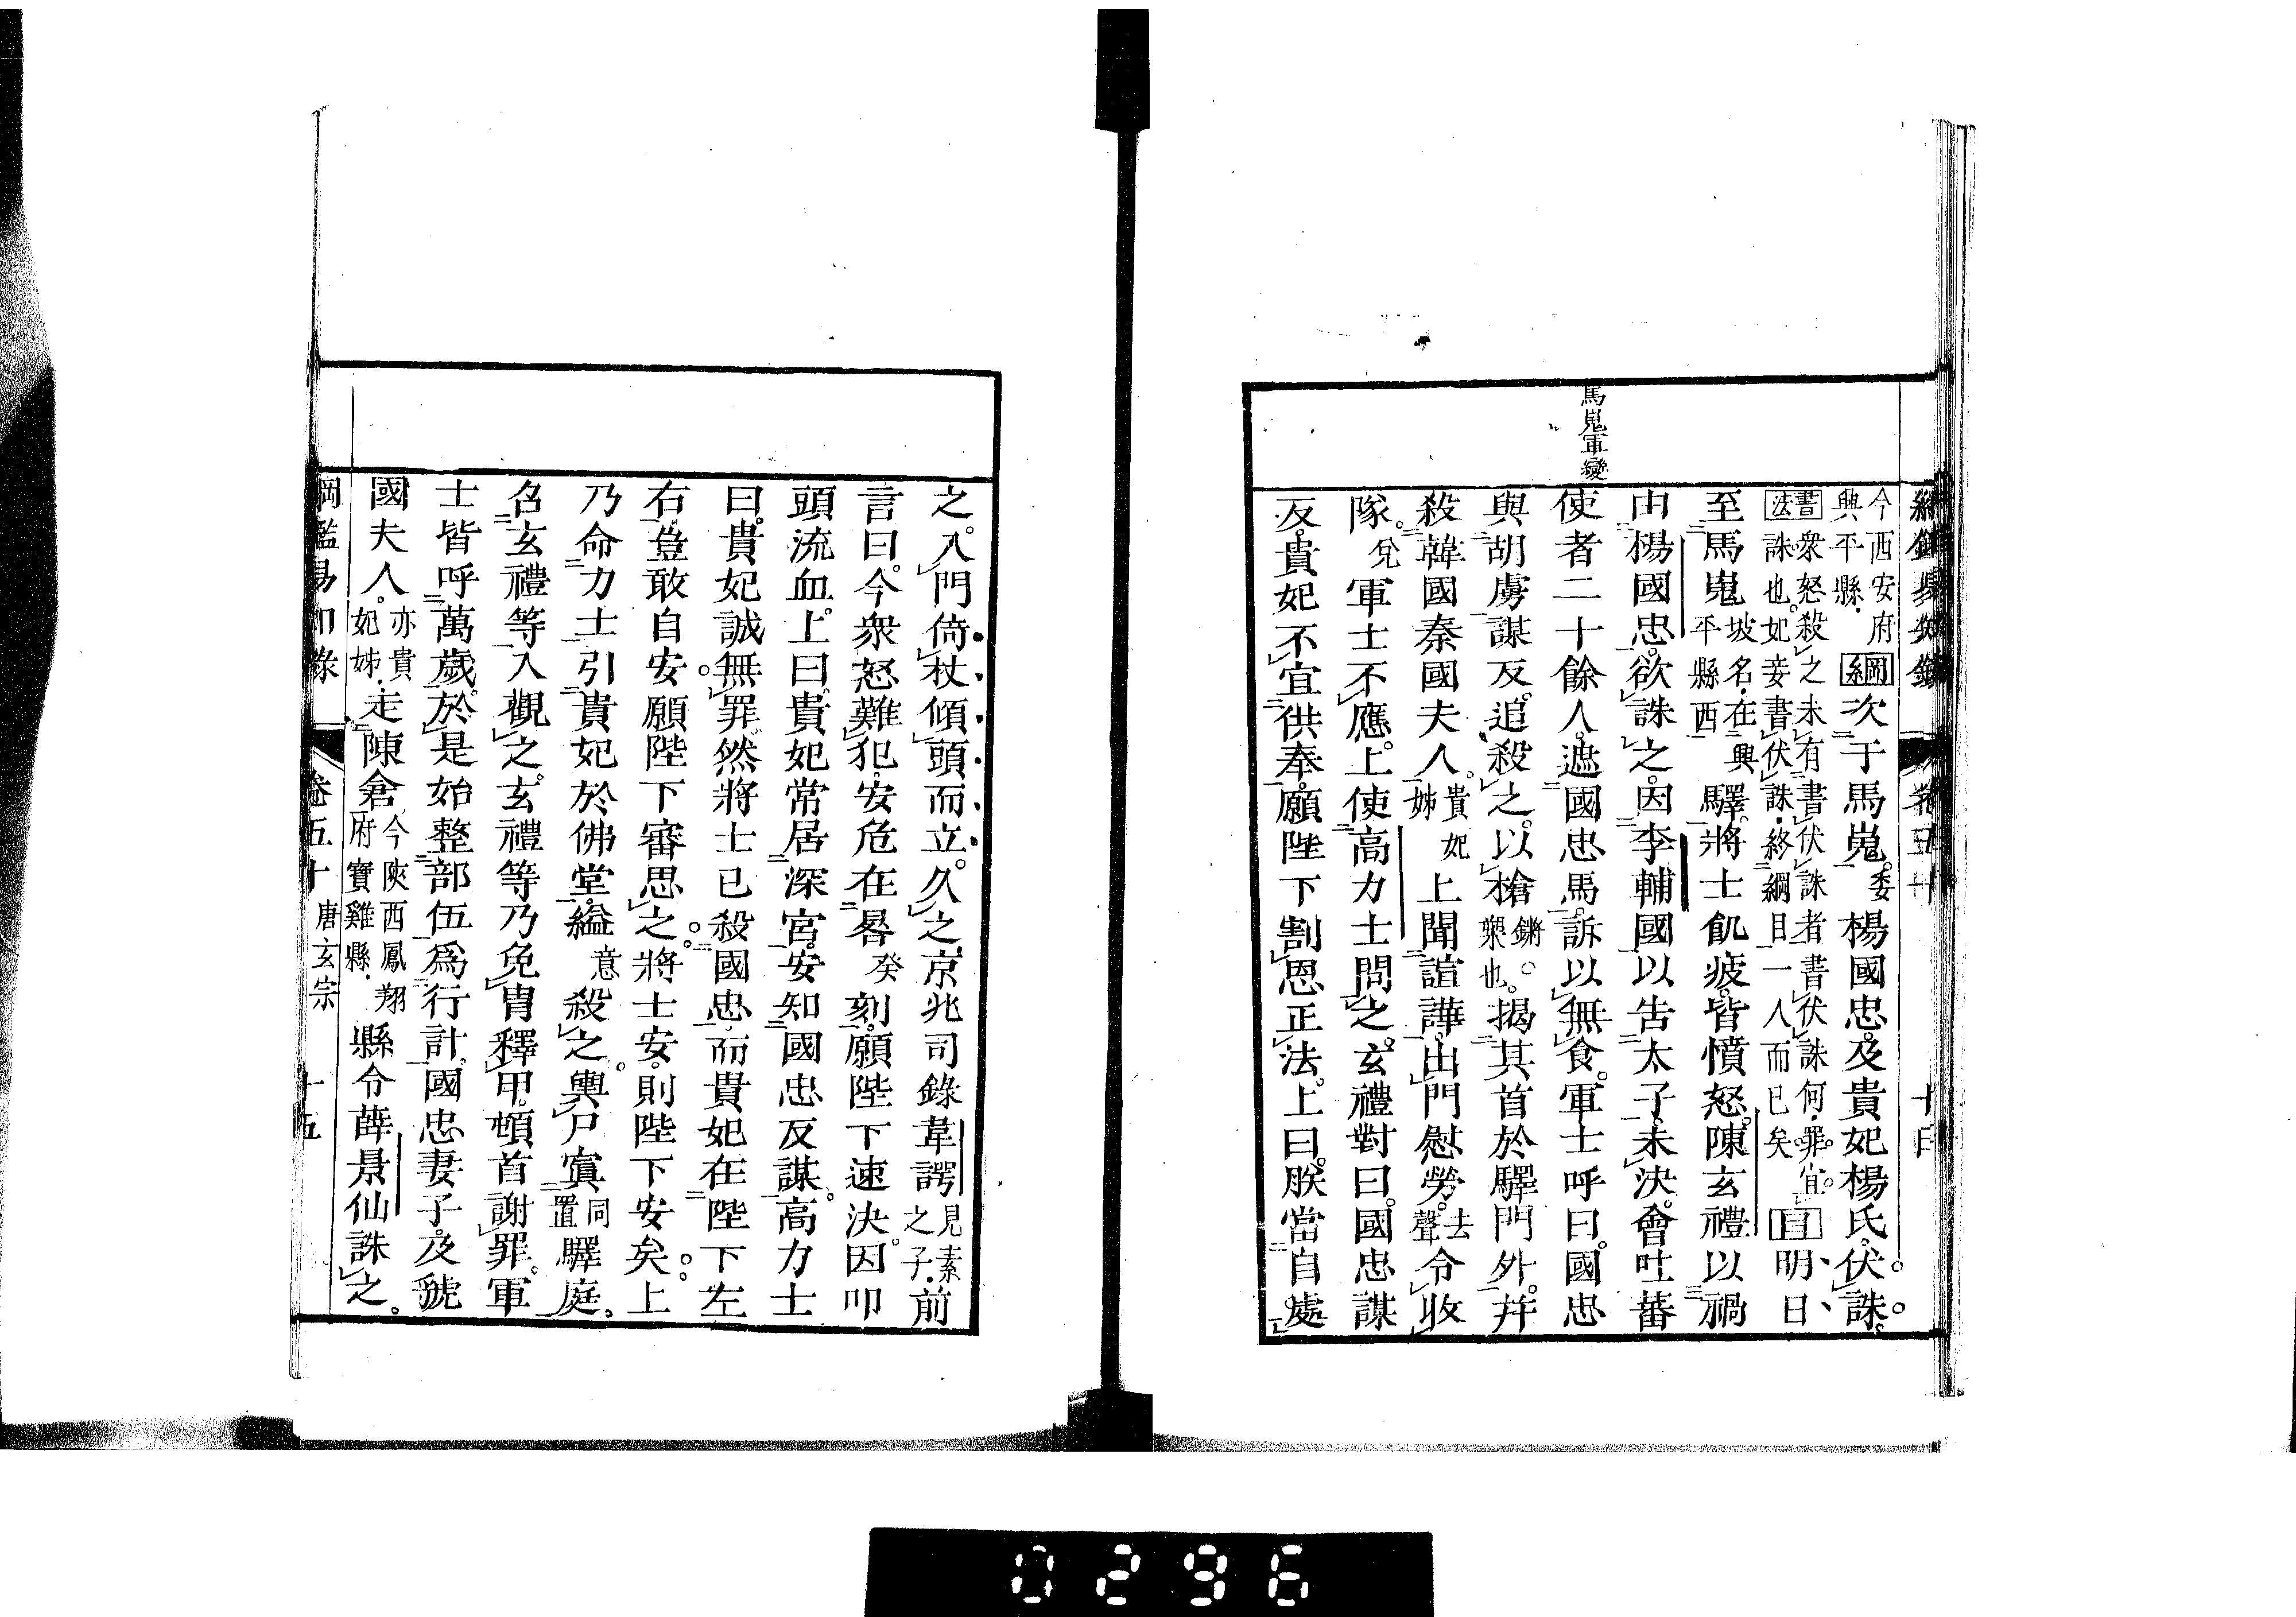 馬嵬軍變
今西安府興平縣綱次于馬嵬委楊國忠及貴妃楊氏伏誅
書法衆怒殺之未有書伏誅者書伏誅何罪宜誅也妃妾書伏誅終綱目一人而已矣直明日
至馬嵬坡名在興平縣西驛將士飢疲皆憤怒陳玄禮以禍
由楊國忠欲誅之因李輔國以告太子未決會吐蕃
使者二十餘人遮國忠馬訴以無食軍士呼曰國忠
與胡虜謀反追殺之以槍鏘槊也揭其首於驛門外并
殺韓國秦國夫人貴妃姊上聞諠譁出門慰勞去聲令收
隊兌軍士不應上使高力士問之玄禮對曰國忠謀
反貴妃不宜供奉願陛下割恩正法上曰朕當自處
之入門倚杖傾頭而立久之京兆司錄韋諤見素之子前
言曰今衆怒難犯安危在晷癸刻願陛下速決因叩
頭流血上曰貴妃常居深宮安知國忠反謀高力士
曰貴妃誠無罪然將士已殺國忠而貴妃在陛下左
右豈敢自安願陛下審思之將士安則陛下安矣上
乃命力士引貴妃於佛堂縊意殺之輿尸寘同置驛庭
召玄禮等入觀之玄禮等乃免冑釋甲頓首謝罪軍
士皆呼萬歲於是始整部伍爲行計國忠妻子及虢
國夫人亦貴妃姊走陳倉今陝西鳳翔府寶雞縣縣令薛景仙誅之
綱鑑易知錄 卷五十 唐玄宗 十五
0296